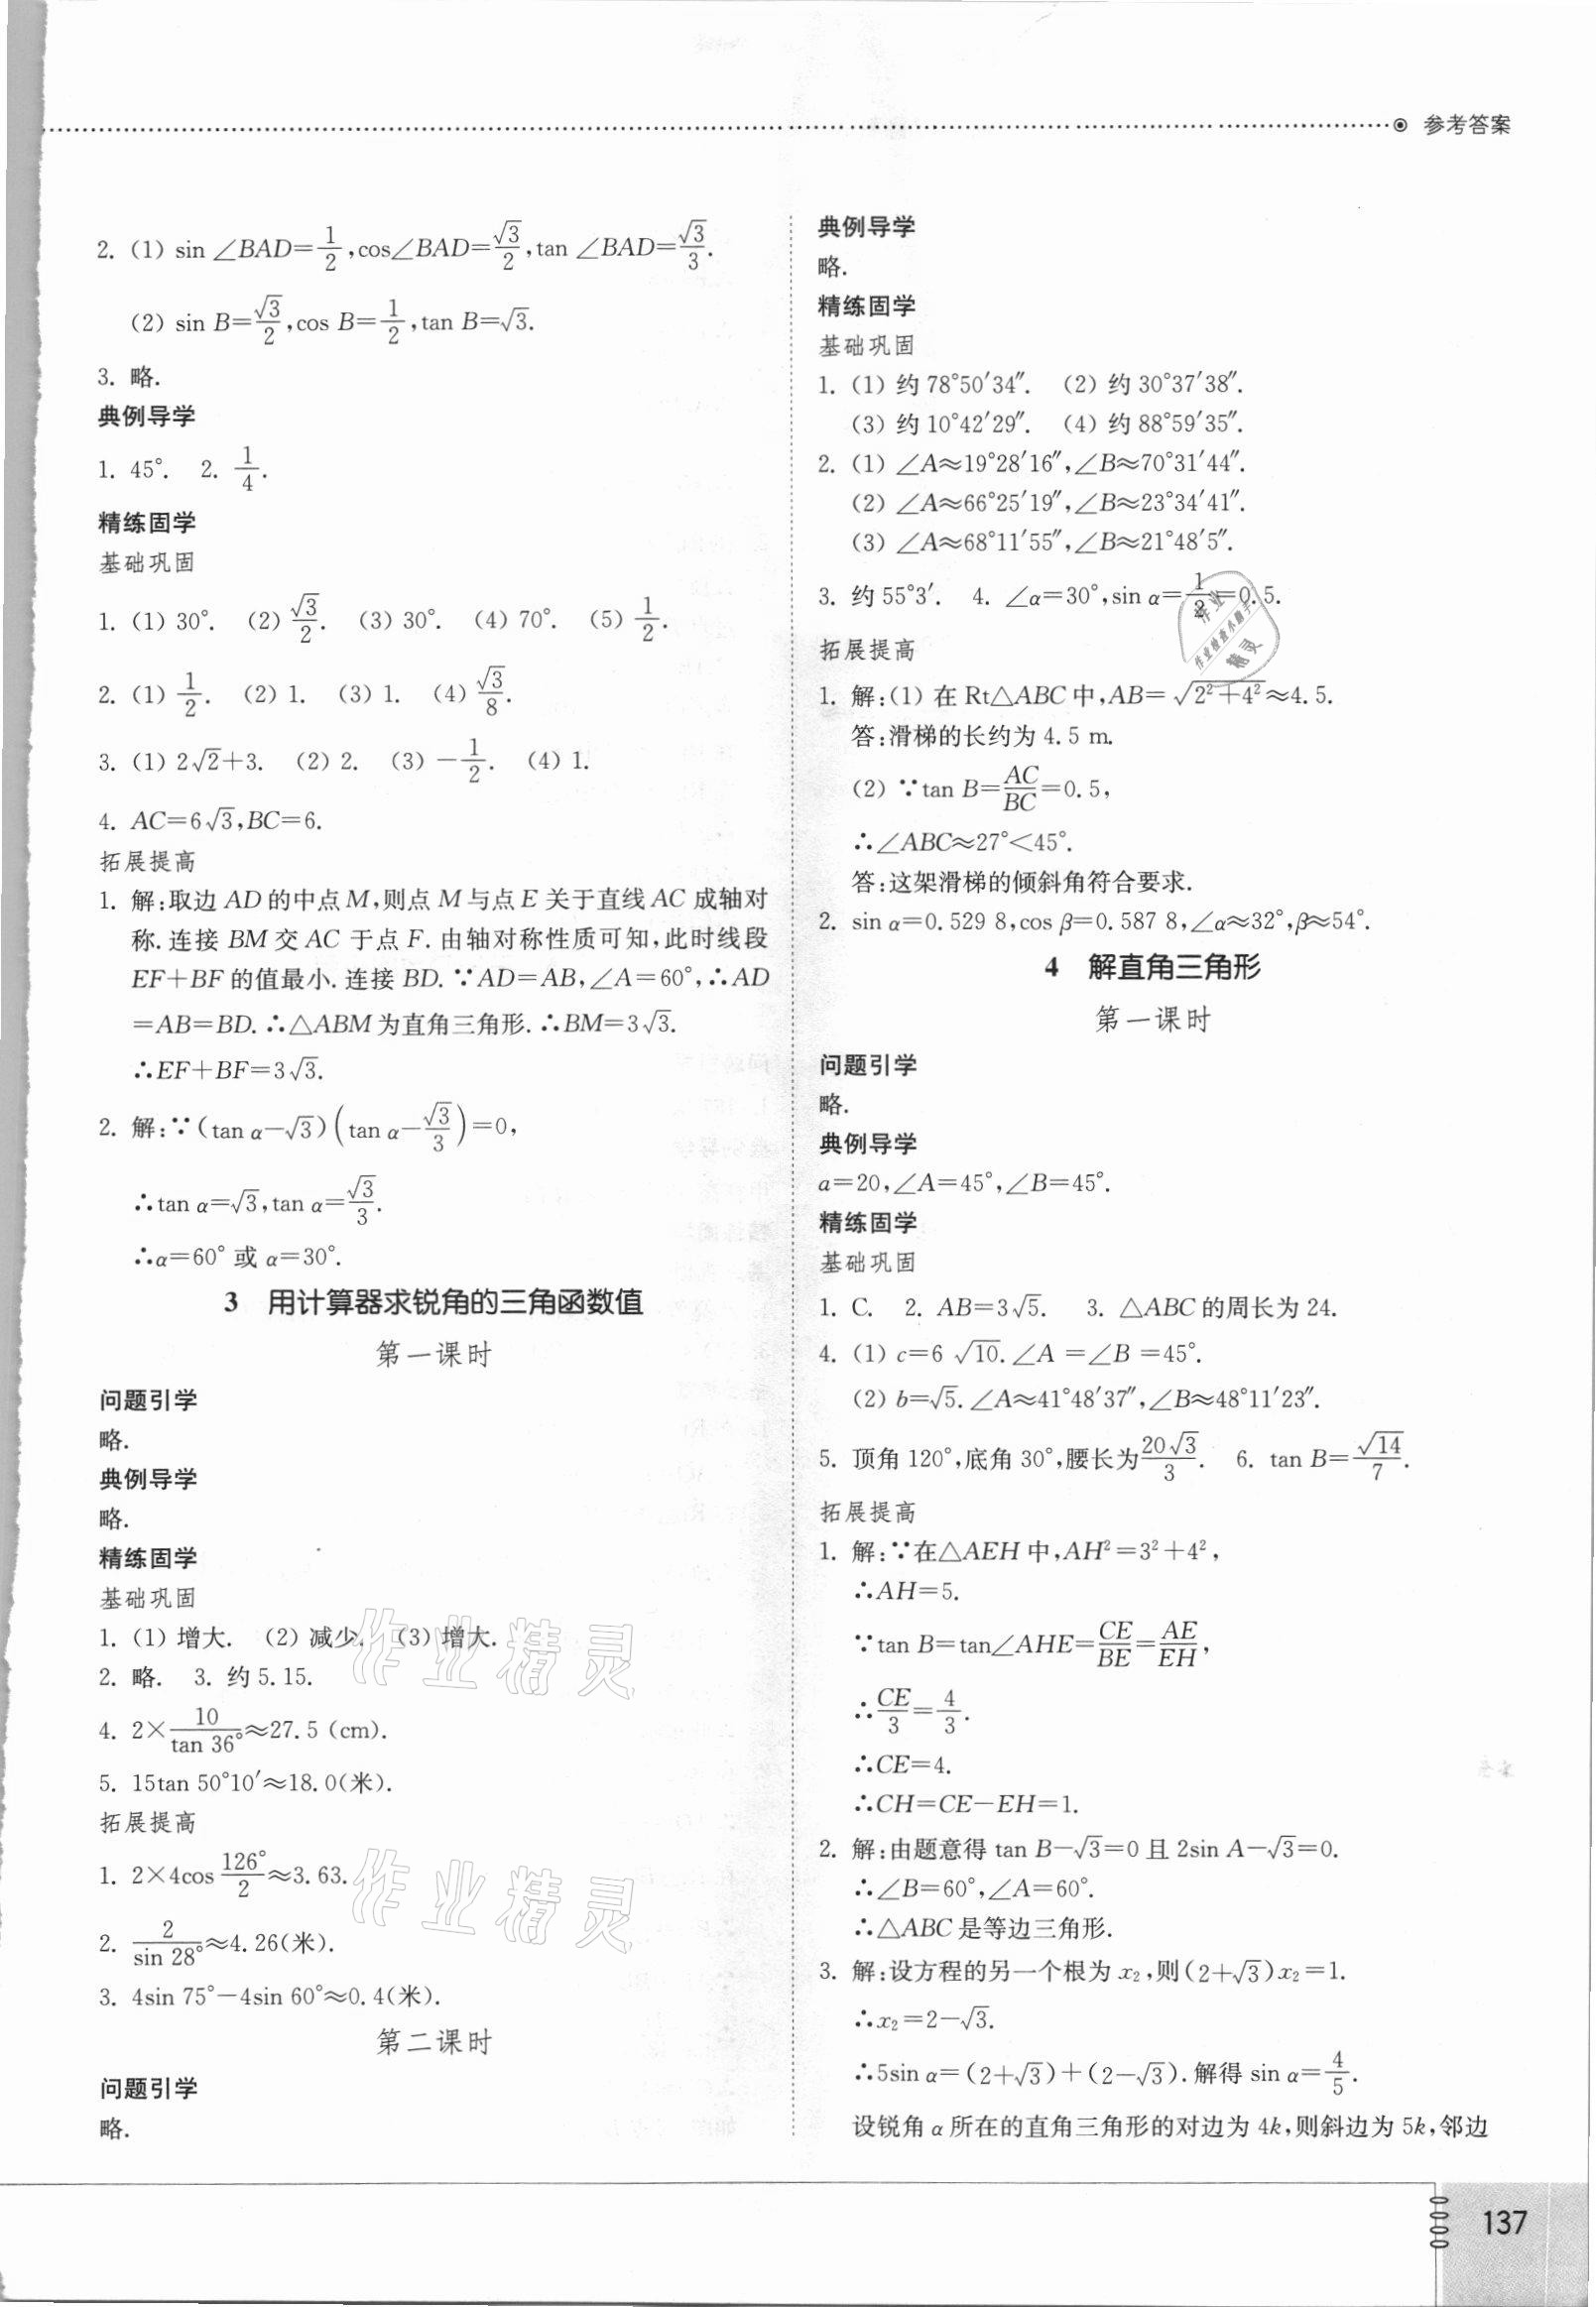 参考答案
2. (1) sin ∠BAD=1/2,cos∠BAD=√3/2,tan ∠BAD=√3/3.
(2) sin B=√3/2,cos B=1/2,tan B=√3.
3. 略.
典例导学
1. 45°. 2. 1/4.
精练固学
基础巩固
1. (1) 30°. (2) √3/2. (3) 30°. (4) 70°. (5) 1/2.
2. (1) 1/2. (2) 1. (3) 1. (4) √3/8.
3. (1) 2√2+3. (2) 2. (3) －1/2. (4) 1.
4. AC=6√3,BC=6.
拓展提高
1. 解:取边 AD 的中点 M,则点 M 与点 E 关于直线 AC 成轴对
称.连接 BM 交 AC 于点 F.由轴对称性质可知,此时线段
EF+BF 的值最小.连接 BD.∵AD=AB,∠A=60°,∴AD
=AB=BD.∴△ABM 为直角三角形.∴BM=3√3.
∴EF+BF=3√3.
2. 解:∵(tan α－√3)(tan α－√3/3)=0,
∴tan α=√3,tan α=√3/3.
∴α=60° 或 α=30°.
3 用计算器求锐角的三角函数值
第一课时
问题引学
略.
典例导学
略.
精练固学
基础巩固
1. (1) 增大. (2) 减少. (3) 增大.
2. 略. 3. 约 5.15.
4. 2×10/tan 36°≈27.5 (cm).
5. 15tan 50°10′≈18.0(米).
拓展提高
1. 2×4cos 126°/2≈3.63.
2. 2/sin 28°≈4.26(米).
3. 4sin 75°－4sin 60°≈0.4(米).
第二课时
问题引学
略.
典例导学
略.
精练固学
基础巩固
1. (1) 约 78°50′34″. (2) 约 30°37′38″.
(3) 约 10°42′29″. (4) 约 88°59′35″.
2. (1) ∠A≈19°28′16″,∠B≈70°31′44″.
(2) ∠A≈66°25′19″,∠B≈23°34′41″.
(3) ∠A≈68°11′55″,∠B≈21°48′5″.
3. 约 55°3′. 4. ∠α=30°,sin α=1/2=0.5.
拓展提高
1. 解:(1) 在 Rt△ABC 中,AB=√(2²+4²)≈4.5.
答:滑梯的长约为 4.5 m.
(2) ∵tan B=AC/BC=0.5,
∴∠ABC≈27°<45°.
答:这架滑梯的倾斜角符合要求.
2. sin α=0.529 8,cos β=0.587 8,∠α≈32°,β≈54°.
4 解直角三角形
第一课时
问题引学
略.
典例导学
a=20,∠A=45°,∠B=45°.
精练固学
基础巩固
1. C. 2. AB=3√5. 3. △ABC 的周长为 24.
4. (1) c=6√10.∠A=∠B=45°.
(2) b=√5.∠A≈41°48′37″,∠B≈48°11′23″.
5. 顶角 120°,底角 30°,腰长为20√3/3. 6. tan B=√14/7.
拓展提高
1. 解:∵在△AEH 中,AH²=3²+4²,
∴AH=5.
∵tan B=tan∠AHE=CE/BE=AE/EH,
∴CE/3=4/3.
∴CE=4.
∴CH=CE－EH=1.
2. 解:由题意得 tan B－√3=0 且 2sin A－√3=0.
∴∠B=60°,∠A=60°.
∴△ABC 是等边三角形.
3. 解:设方程的另一个根为 x₂,则(2+√3)x₂=1.
∴x₂=2－√3.
∴5sin α=(2+√3)+(2－√3).解得 sin α=4/5.
设锐角 α 所在的直角三角形的对边为 4k,则斜边为 5k,邻边
137
作业精灵
作业精灵
作业
作业检查小助手
精灵